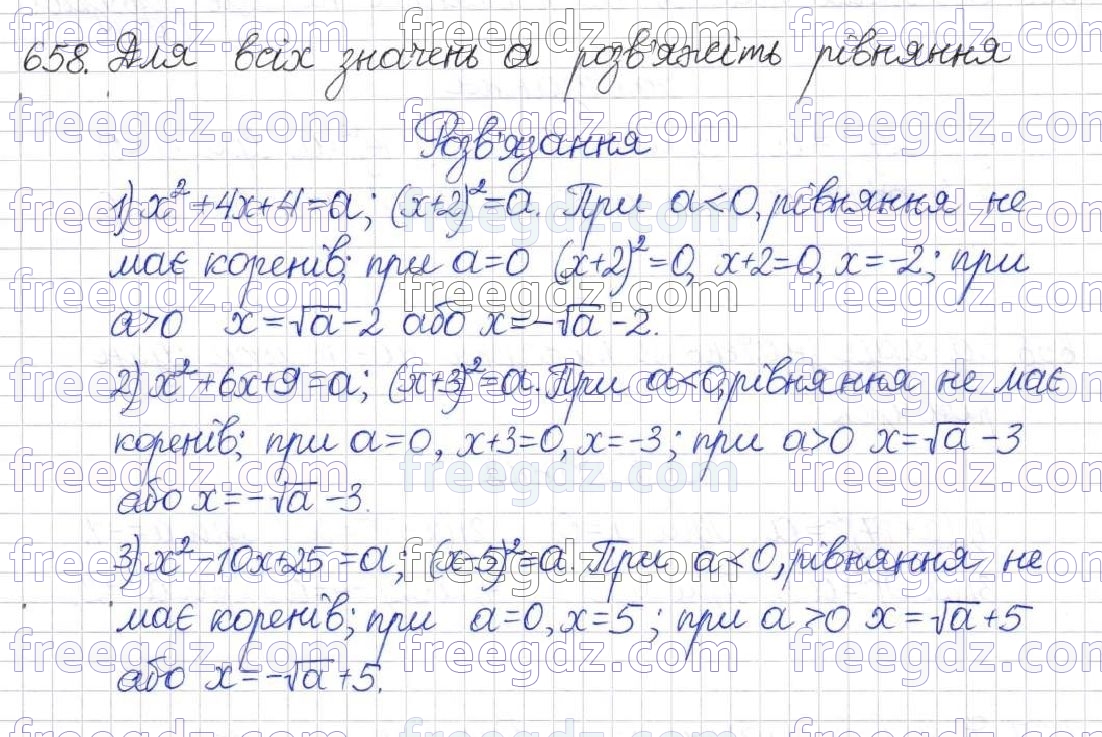 658. Для всіх значень a розв'яжіть рівняння
Розв'язання
1) x²+4x+4=a; (x+2)²=a. При a<0, рівняння не
має коренів; при a=0 (x+2)²=0, x+2=0, x=-2; при
a>0 x=√a-2 або x=-√a-2.
2) x²+6x+9=a; (x+3)²=a. При a<0, рівняння не має
коренів; при a=0, x+3=0, x=-3; при a>0 x=√a-3
або x=-√a-3.
3) x²-10x+25=a; (x-5)²=a. При a<0, рівняння не
має коренів; при a=0, x=5; при a>0 x=√a+5
або x=-√a+5.
freegdz.com